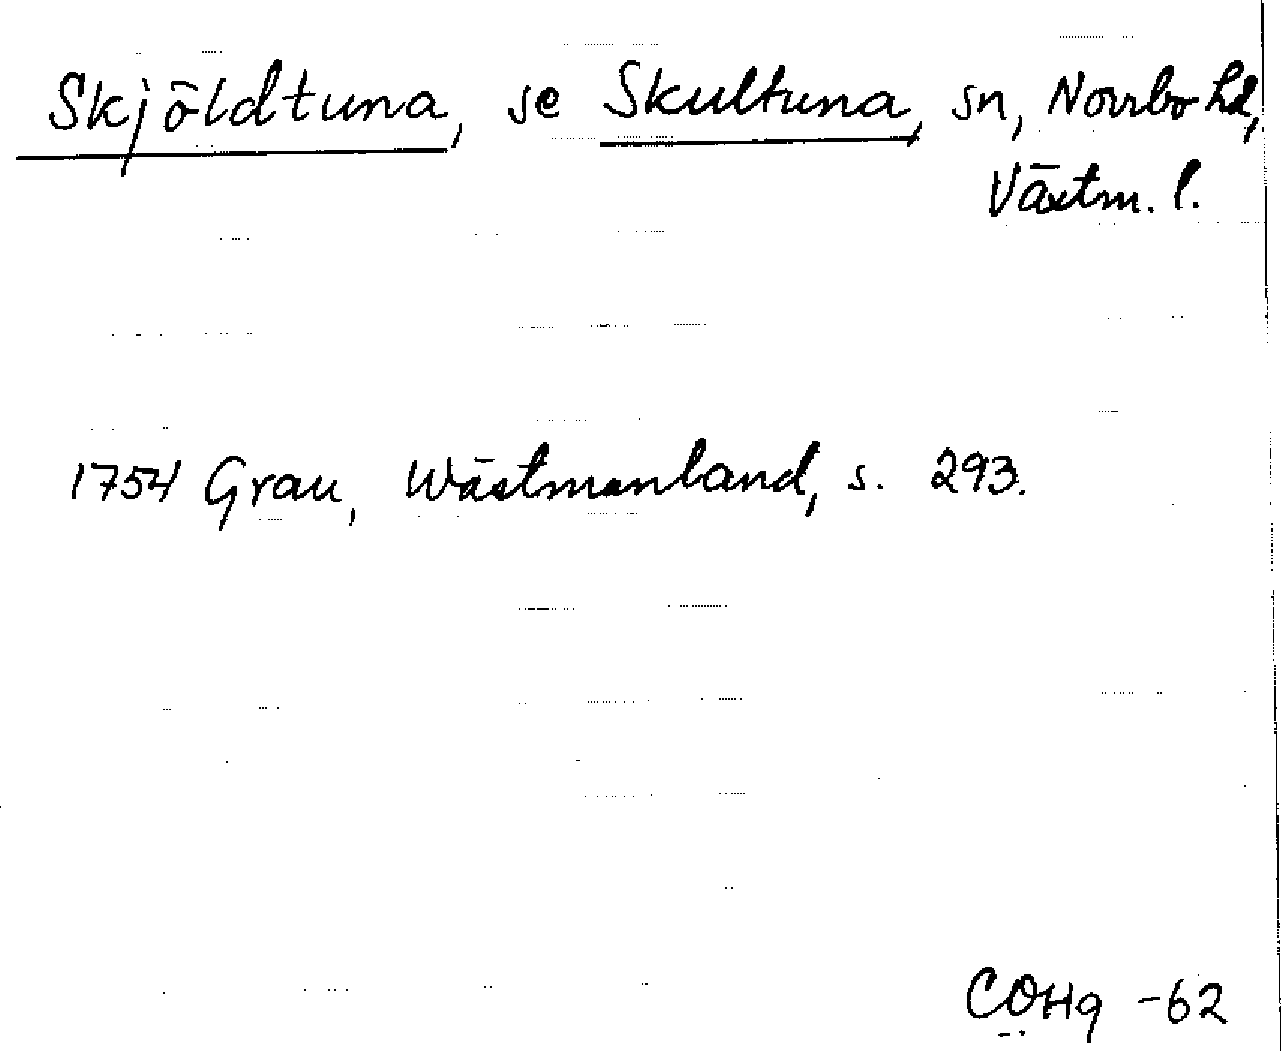 Skjöldtuna, se Skultuna, sn, Norrbo hd,
Västm. l.
1754 Grau, Wästmanland, s. 293.
COHg -62